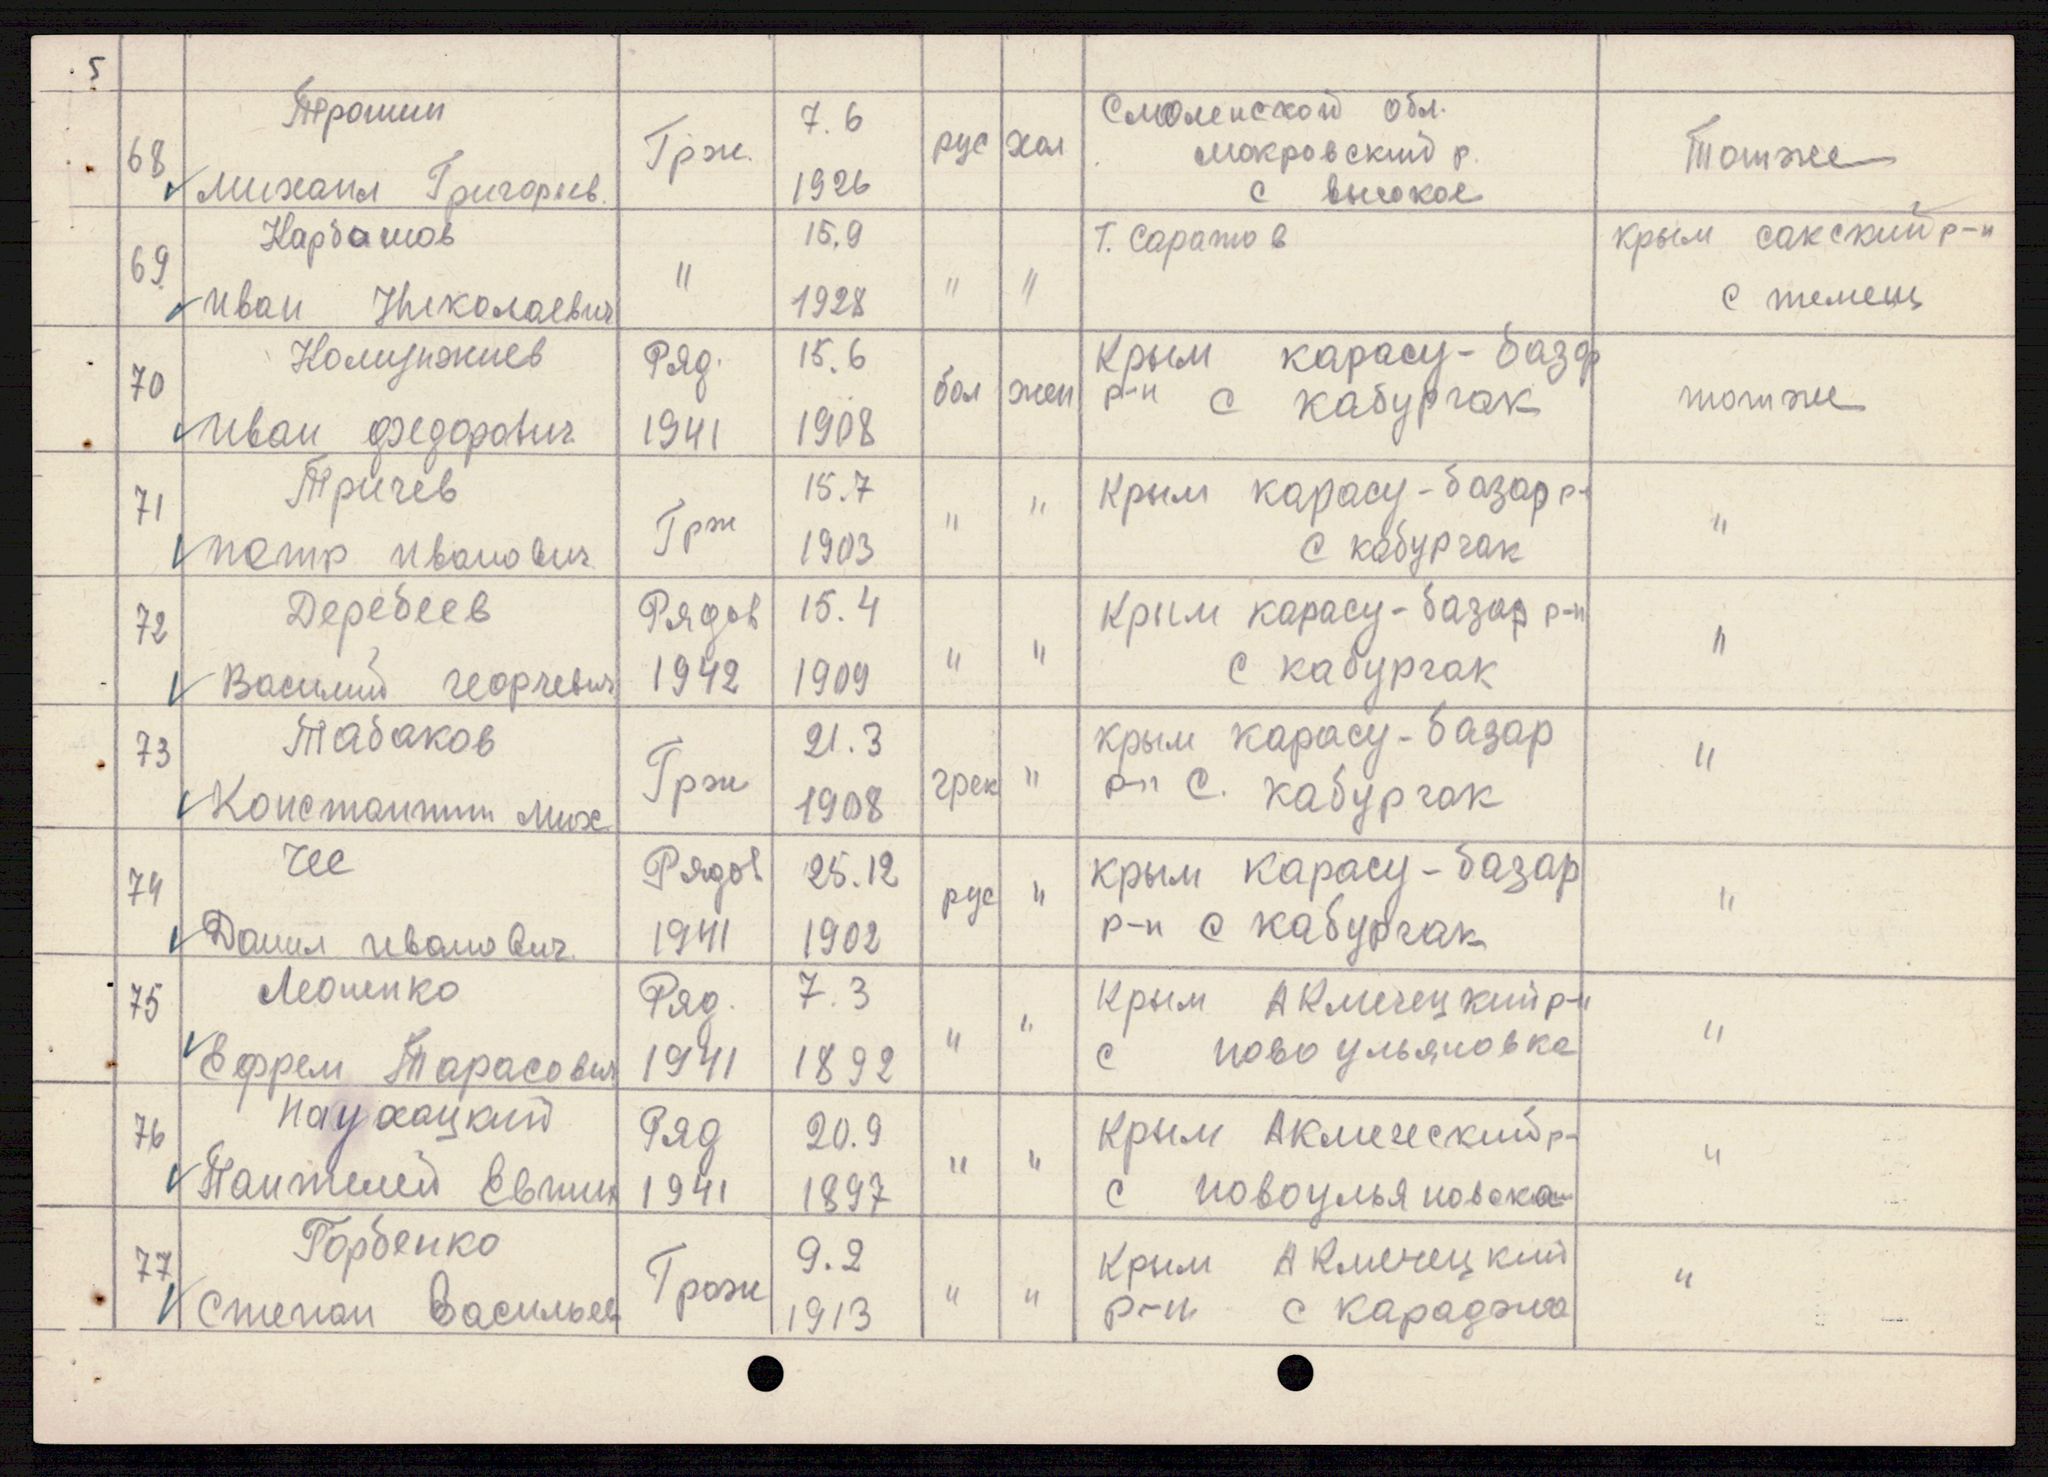 5
68 Трошин Грж. 7.6 рус хол Смоленской обл.
Михаил Григорьев. 1926 Мокровский р. Тотже
с высокое
69 Карбашов " 15.9 " " г. Саратов крым сакский р-н
Иван Николаевич 1928 с темеш
70 Колиунжиев Ряд. 15.6 бол жен Крым карасу-базар
Иван Федорович 1941 1908 р-н с кабургак тотже
71 Тричев Грж 15.7 " " Крым карасу-базар р-
Петр Иванович 1903 с кабургак "
72 Деребеев Рядов 15.4 " " Крым карасу-базар р-н
Василий георгевич 1942 1909 с кабургак "
73 Табаков Грж 21.3 грек " крым карасу-базар
Константин Мих 1908 р-н с. кабургак "
74 Чее Рядов 25.12 рус " крым карасу-базар
Данил Иванович. 1941 1902 р-н с кабургак "
75 Леоненко Ряд. 7.3 " " Крым АКмечецкий р-н
Ефрем Тарасович 1941 1892 с ново ульяновка "
76 Наухацкий Ряд 20.9 " " Крым АКмеческий р-
Пантелей Евтих 1941 1897 с новоульяновка "
77 Горбенко Грож 9.2 " " Крым АКмечецкий
Степан Васильев 1913 р-н с караджа "